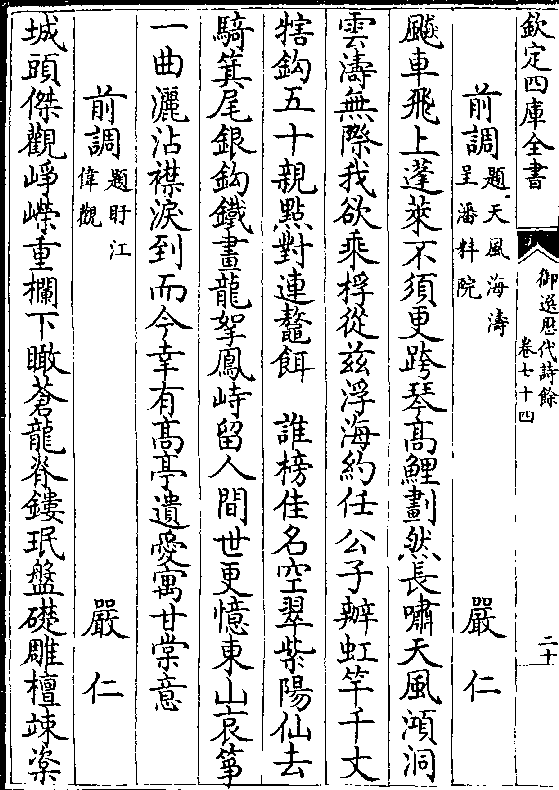 欽定四庫全書
御選歷代詩餘
卷七十四
二十
前調
題天風海濤
呈潘料院
嚴仁
飈車飛上蓬萊不須更跨琴高鯉劃然長嘯天風澒洞
雲濤無際我欲乘桴從茲浮海約任公子辦虹竿千丈
犗鈎五十親㸃對連鼇餌　誰榜佳名空翠紫陽仙去
騎箕尾銀鈎鐵畫龍拏鳳峙留人間世更憶東山哀箏
一曲灑沾襟淚到而今幸有髙亭遺愛寓甘棠意
前調
題盱江
偉觀
嚴仁
城頭傑觀崢嶸重欄下瞰蒼龍脊鏤珉盤礎雕檀竦桼